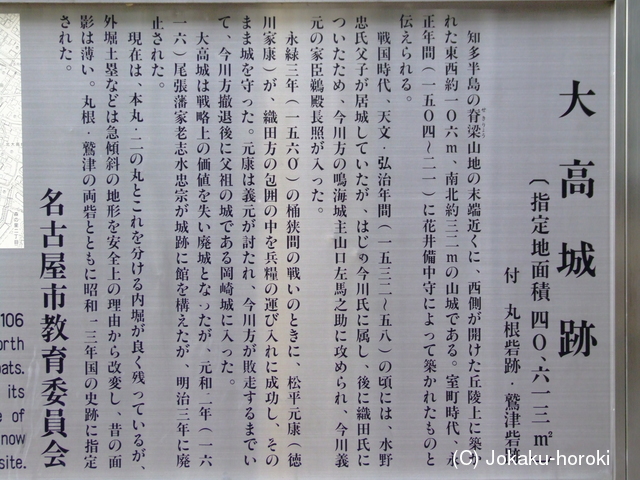 大高城跡
(指定地面積 四〇、六一三㎡)
付 丸根砦跡・鷲津砦跡
知多半島の脊梁山地の末端近くに、西側が開けた丘陵上に築か
せきりょう
れた東西約一〇六m、南北約三二mの山城である。室町時代、永
正年間(一五〇四~二一)に花井備中守によって築かれたものと
伝えられる。
戦国時代、天文・弘治年間(一五三二~五八)の頃には、水野
忠氏父子が居城していたが、はじめ今川氏に属し、後に織田氏に
ついたため、今川方の鳴海城主山口左馬之助に攻められ、今川義
元の家臣鵜殿長照が入った。
永緑三年(一五六〇)の桶狭間の戦いのときに、松平元康(徳
川家康)が、織田方の包囲の中を兵糧の運び入れに成功し、その
まま城を守った。元康は義元が討たれ、今川方が敗走するまでい
て、今川方撤退後に父祖の城である岡崎城に入った。
大高城は戦略上の価値を失い廃城となったが、元和二年(一六
一六)尾張藩家老志水忠宗が城跡に館を構えたが、明治三年に廃
止された。
現在は、本丸・二の丸とこれを分ける内堀が良く残っているが、
外堀土塁などは急傾斜の地形を安全上の理由から改変し、昔の面
影は薄い。丸根・鷲津の両砦とともに昭和一三年国の史跡に指定
された。
名古屋市教育委員会
106
orth
oats.
its
e of
now
site.
(C) Jokaku-horoki